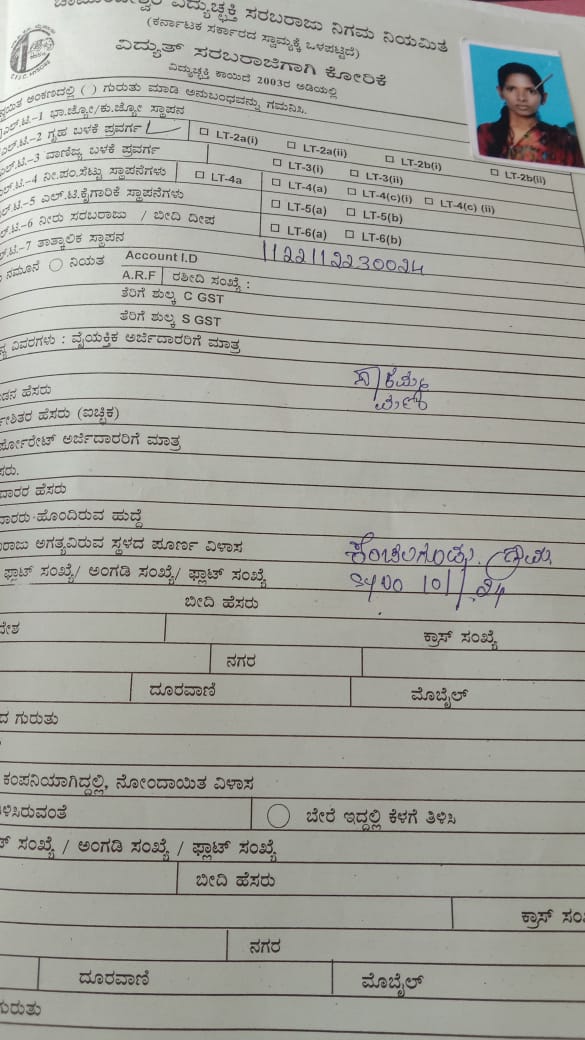 ವಿದ್ಯುಚ್ಛಕ್ತಿ ಸರಬರಾಜು ನಿಗಮ ನಿಯಮಿತ
(ಕರ್ನಾಟಕ ಸರ್ಕಾರದ ಸ್ವಾಮ್ಯಕ್ಕೆ ಒಳಪಟ್ಟಿದೆ)
ವಿದ್ಯುತ್ ಸರಬರಾಜಿಗಾಗಿ ಕೋರಿಕೆ
ವಿದ್ಯುಚ್ಛಕ್ತಿ ಕಾಯಿದೆ 2003ರ ಅಡಿಯಲ್ಲಿ
ಅಂಕಣದಲ್ಲಿ ( ) ಗುರುತು ಮಾಡಿ ಅನುಬಂಧವನ್ನು ಗಮನಿಸಿ.
ಎಲ್.ಟಿ.–1 ಭಾ.ಜ್ಯೋ/ಕು.ಜ್ಯೋ ಸ್ಥಾಪನ
ಎಲ್.ಟಿ.–2 ಗೃಹ ಬಳಕೆ ಪ್ರವರ್ಗ LT-2a(i) LT-2a(ii) LT-2b(i) LT-2b(ii)
ಎಲ್.ಟಿ.–3 ವಾಣಿಜ್ಯ ಬಳಕೆ ಪ್ರವರ್ಗ LT-3(i) LT-3(ii)
ಎಲ್.ಟಿ.–4 ನೀ.ಪಂ.ಸೆಟ್ಟು ಸ್ಥಾಪನೆಗಳು LT-4a LT-4(a) LT-4(c)(i) LT-4(c) (ii)
ಎಲ್.ಟಿ.–5 ಎಲ್.ಟಿ.ಕೈಗಾರಿಕೆ ಸ್ಥಾಪನೆಗಳು LT-5(a) LT-5(b)
ಎಲ್.ಟಿ.–6 ನೀರು ಸರಬರಾಜು / ಬೀದಿ ದೀಪ LT-6(a) LT-6(b)
ಎಲ್.ಟಿ.–7 ತಾತ್ಕಾಲಿಕ ಸ್ಥಾಪನ
ನಮೂನೆ ನಿಯತ Account I.D 1122112230024
A.R.F ರಶೀದಿ ಸಂಖ್ಯೆ :
ತೆರಿಗೆ ಶುಲ್ಕ C GST
ತೆರಿಗೆ ಶುಲ್ಕ S GST
ವಿವರಗಳು : ವೈಯಕ್ತಿಕ ಅರ್ಜಿದಾರರಿಗೆ ಮಾತ್ರ
ಹೆಸರು
ಹೆಸರು (ಐಚ್ಛಿಕ)
ಅರ್ಜಿದಾರರಿಗೆ ಮಾತ್ರ
ಹೆಸರು
ಹೊಂದಿರುವ ಹುದ್ದೆ
ಅಗತ್ಯವಿರುವ ಸ್ಥಳದ ಪೂರ್ಣ ವಿಳಾಸ
ಫ್ಲಾಟ್ ಸಂಖ್ಯೆ/ ಅಂಗಡಿ ಸಂಖ್ಯೆ/ ಫ್ಲಾಟ್ ಸಂಖ್ಯೆ
ಬೀದಿ ಹೆಸರು
ಕ್ರಾಸ್ ಸಂಖ್ಯೆ
ನಗರ
ದೂರವಾಣಿ ಮೊಬೈಲ್
ಗುರುತು
ಕಂಪನಿಯಾಗಿದ್ದಲ್ಲಿ, ನೋಂದಾಯಿತ ವಿಳಾಸ
ಬೇರೆ ಇದ್ದಲ್ಲಿ ಕೆಳಗೆ ತಿಳಿಸಿ
ಸಂಖ್ಯೆ / ಅಂಗಡಿ ಸಂಖ್ಯೆ / ಫ್ಲಾಟ್ ಸಂಖ್ಯೆ
ಬೀದಿ ಹೆಸರು
ಕ್ರಾಸ್
ನಗರ
ದೂರವಾಣಿ ಮೊಬೈಲ್
ಗುರುತು